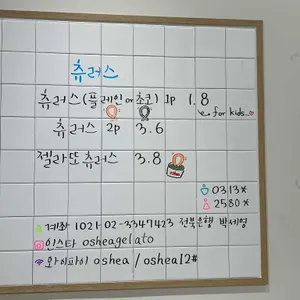 츄러스
츄러스(플레인 or 초코) 1p 1.8
for kids
츄러스 2p 3.6
젤라또츄러스 3.8
oshea
0313*
2580*
계좌 1021-02-3347423 전북은행 박세영
인스타 osheagelato
와이파이 oshea / oshea12#